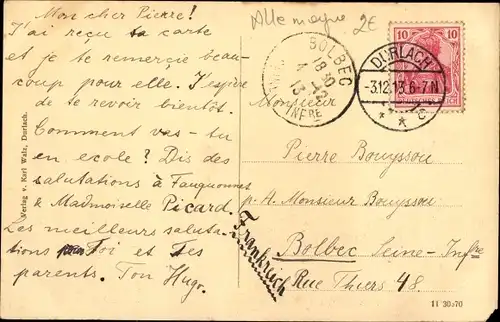 Mon cher Pierre!
J'ai reçu ta carte
et je te remercie beau-
coup pour elle. J'espère
de te revoir bientôt.
Comment vas-tu
en école? Dis des
salutations à Fauquonnet
& Madmoiselle Picard.
Les meilleurs saluta-
tions toi et Tes
parents. Ton Hugo.
Verlag v. Karl Walz, Durlach.
Allemagne 2€
BOLBEC
18 30
4 -12
13
INFRE
10 10
DURLACH
-3.12.13.6-7N
* * * c
Monsieur
Pierre Bouyssou
p. A. Monsieur Bouyssou.
Bolbec Seine-Infre
Rue Thiers 48.
Frankreich
11 30570